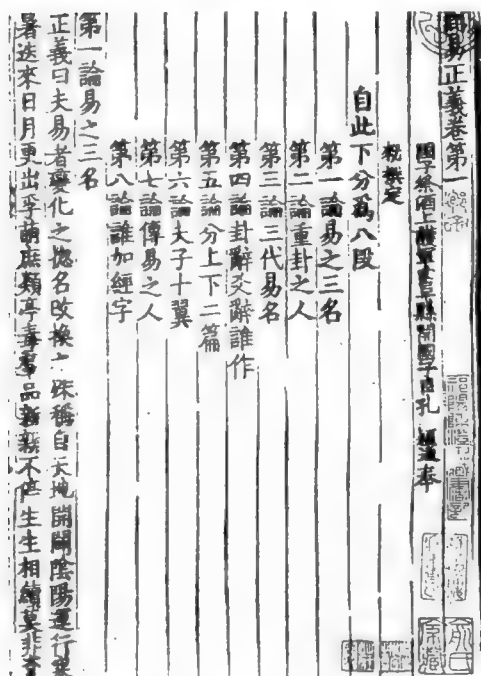 周易正義卷第一
國子祭酒上護軍曲阜縣開國子臣孔穎達奉
勑撰定
自此下分爲八段
第一論易之三名
第二論重卦之人
第三論三代易名
第四論卦辭爻辭誰作
第五論分上下二篇
第六論夫子十翼
第七論傳易之人
第八論誰加經字
第一論易之三名
正義曰夫易者變化之惣名改換之殊稱自天地開闢陰陽運行寒
暑迭來日月更出孚萌庶類亭毒羣品新新不停生生相續莫非資